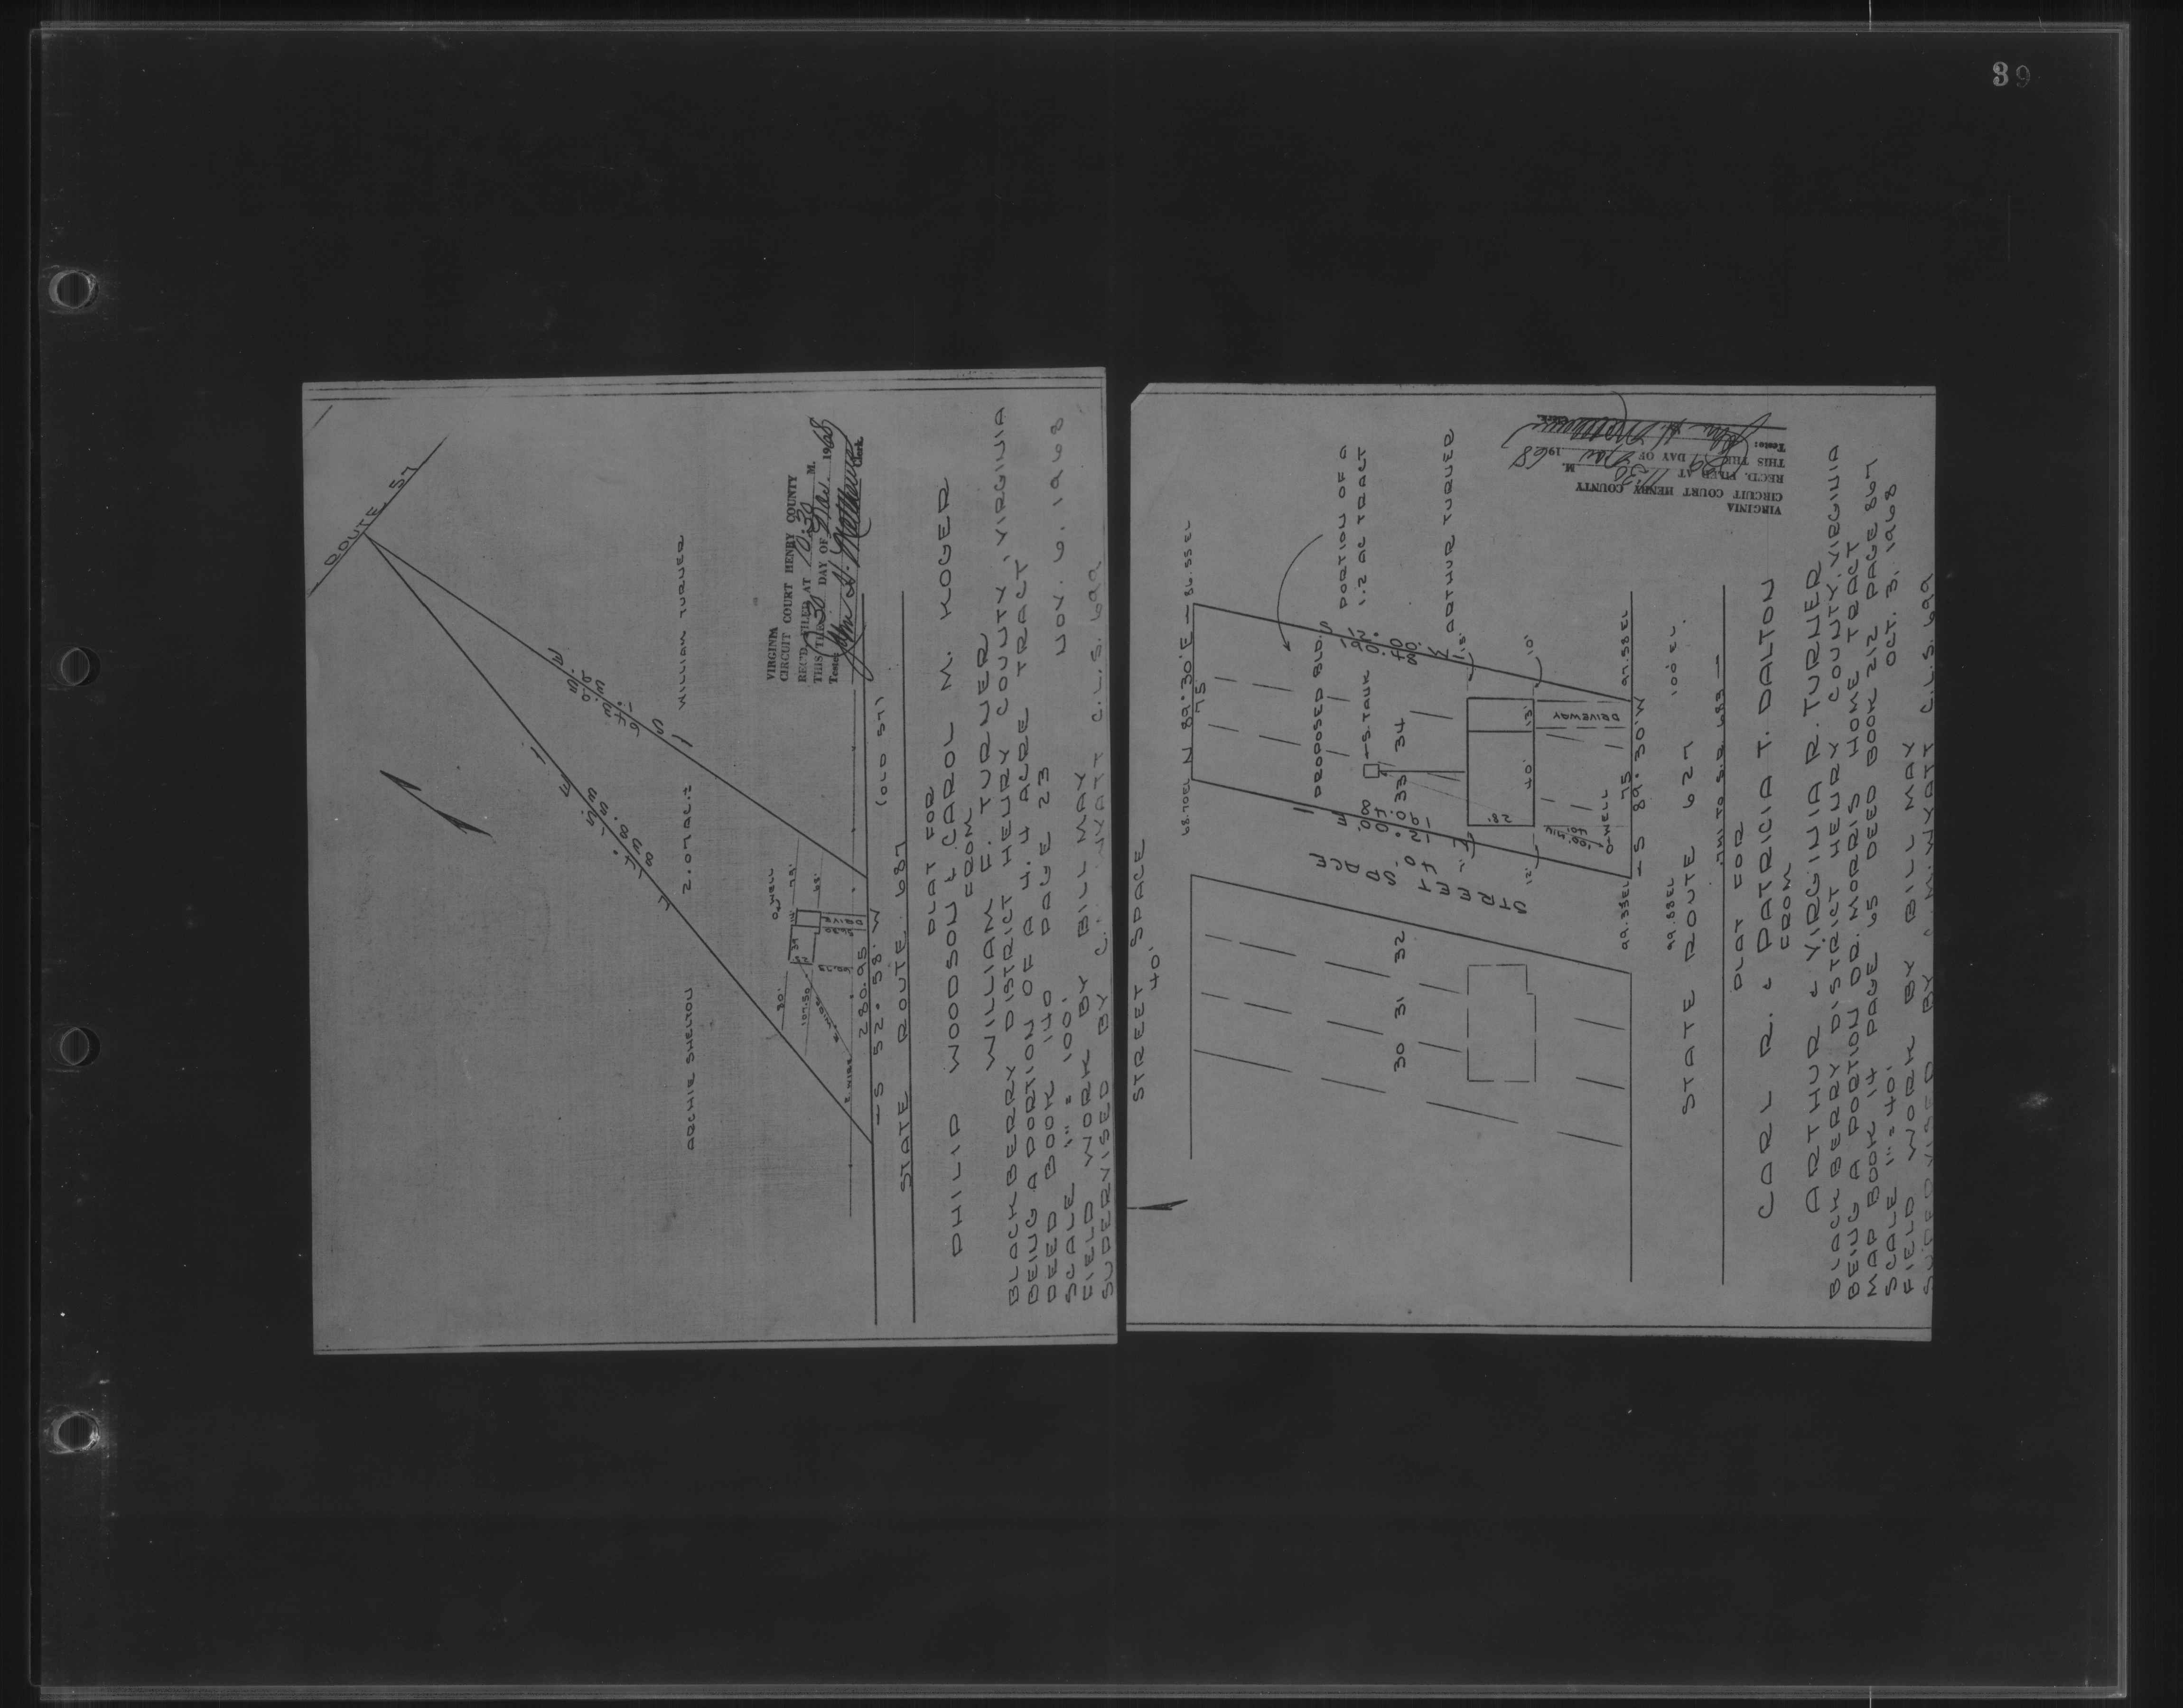 39
ROUTE 57
WILLIAM TURNER
2.07 AC.±
ARCHIE SHELTON
VIRGINIA
CIRCUIT COURT HENRY COUNTY
REC'D. FILED AT 10:30 M.
THIS THE 30 DAY OF Nov. 1968
Teste: John H. Matthews
Clerk
O WELL
79'
62'
39
DRIVE
30'
107.50
280.95
S 52° 58' W
(OLD 57)
STATE ROUTE 687
PLAT FOR
PHILIP WOODSON & CAROL M. KOGER
FROM
WILLIAM F. TURNER
BLACKBERRY DISTRICT HENRY COUNTY, VIRGINIA
BEING A PORTION OF A 4.4 ACRE TRACT
DEED BOOK 140 PAGE 23
SCALE 1" = 100'
NOV. 6. 1968
FIELD WORK BY BILL MAY
SUPERVISED BY C. WYATT C.L.S. 699
STREET SPACE
40'
68.70EL N 89° 30' E 86.55EL
75
PORTION OF A
1.2 AC TRACT
ARTHUR TURNER
PROPOSED BLD.
S. TANK
S 12° 00' W
190.48
12° 00' E
190.48
30 31 32 33 34
STREET SPACE
40'
15'
10'
12'
13'
40'
28'
DRIVEWAY
O WELL
99.33EL
75
97.58EL
S 89° 30' W
99.88EL
100' EL.
STATE ROUTE 627
.7MI TO S.R. 683
VIRGINIA
CIRCUIT COURT HENRY COUNTY
REC'D. FILED AT 11:30 M.
THIS THE DAY OF Nov 1968
Teste: John H. Matthews
PLAT FOR
CARL R. & PATRICIA T. DALTON
FROM
ARTHUR & VIRGINIA R. TURNER
BLACKBERRY DISTRICT HENRY COUNTY, VIRGINIA
BEING A PORTION DR. MORRIS HOME TRACT
MAP BOOK 14 PAGE 65 DEED BOOK 212 PAGE 867
SCALE 1" = 40'
OCT. 3, 1968
FIELD WORK BY BILL MAY
SUPERVISED BY M. WYATT C.L.S. 699